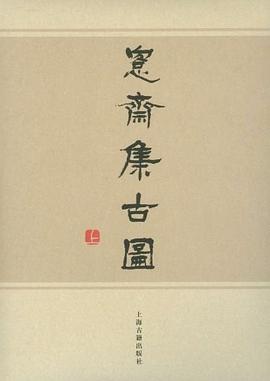 愙齋集古圖
上
上海古籍出版社